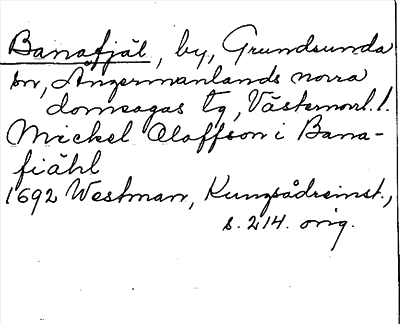 Banafjäl, by, Grundsunda
sn, Ångermanlands norra
domsagas tg, Västernorrl. l.
Mickel Oloffson i Bana-
fiähl
1692 Westman, Kungsådreinst.,
s. 214. orig.